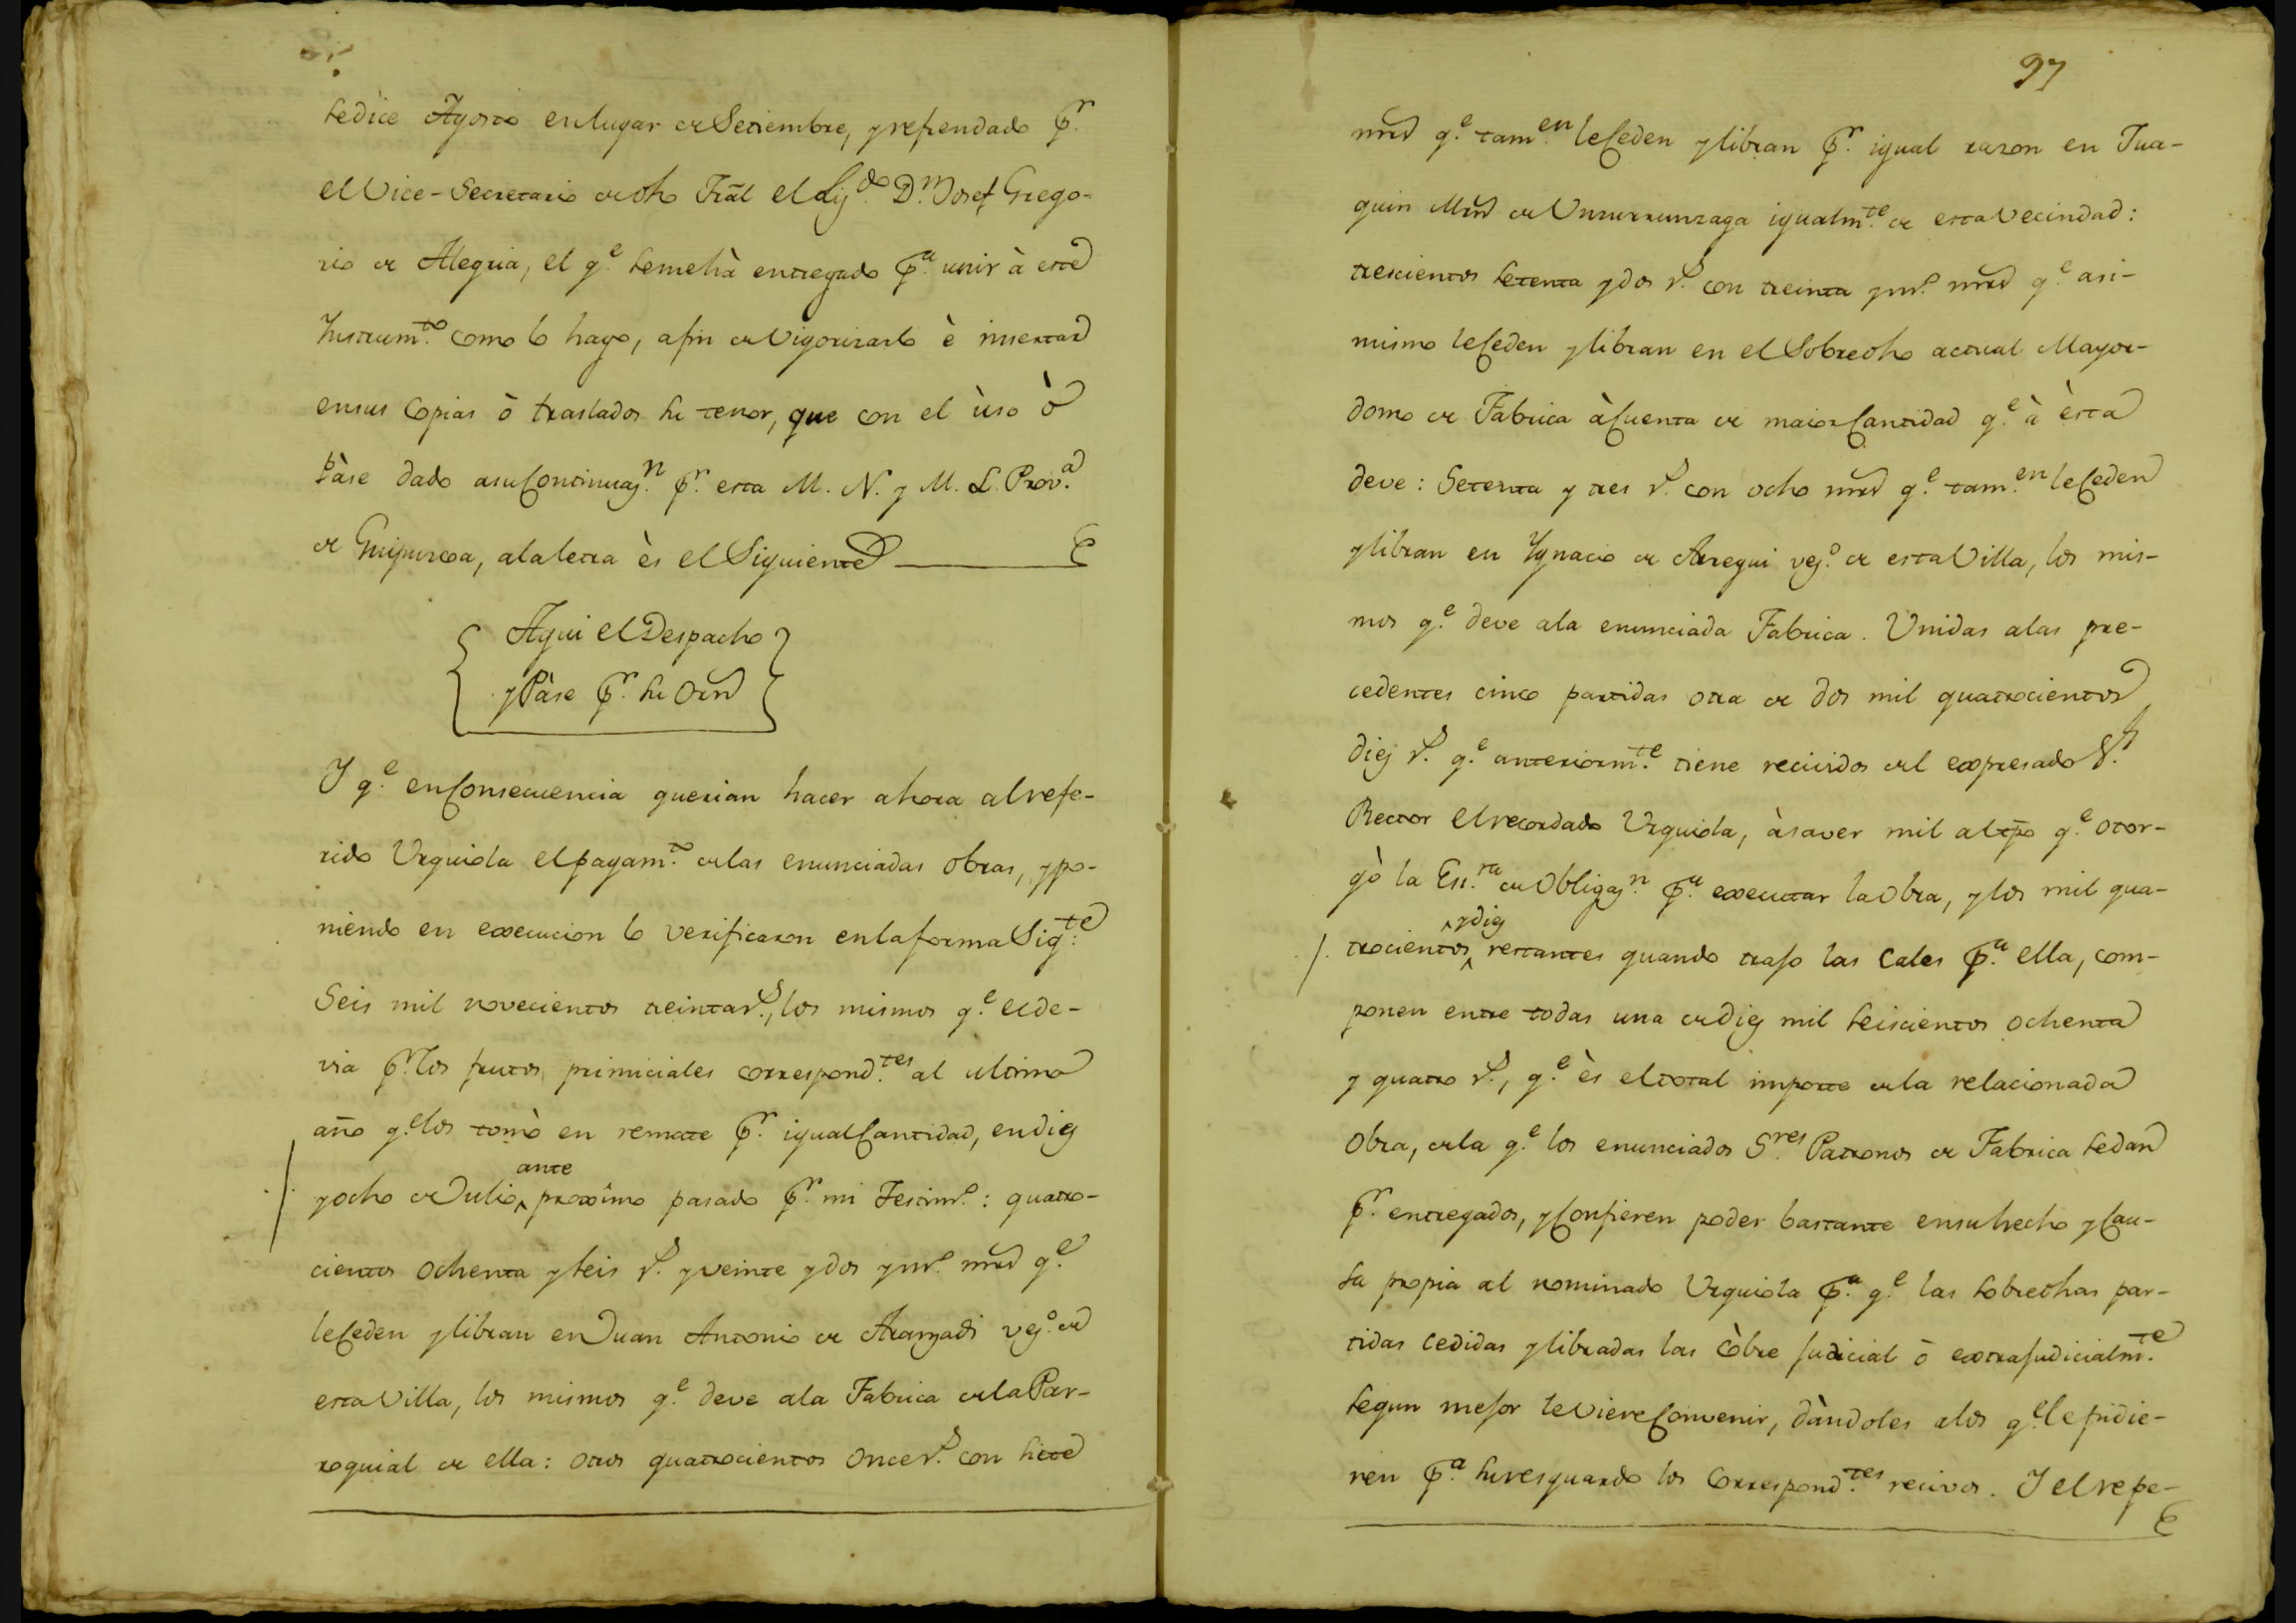 sedice Agosto enlugar de Setiembre, y refrendado pr.
el Vice-Secretario de dho Tral el Lijdo. Dn. Josef Grego-
rio de Alegria, el qe. seme hà entregado pa. unir à este
Ynstrumto. como lo hago, afin de Vigorizarlo è insertar
ensus Copias ò traslados su tenor, que con el ùso ò
Pàse dado asu Continuazn. pr. esta M. N. y M. L. Prova.
de Guipuzcoa, ala letra ès el Siguiente
Aqui el Despacho
y Pàse pr. su Orn
Y qe. en Consecuencia querian hacer ahora al refe-
rido Urquiola el pagamto. de las enunciadas obras, y po-
niendo en execucion lo verificaron en la forma Sigte:
Seis mil novecientos treinta rs., los mismos qe. el de-
via pr. los frutos primiciales correspondtes. al ultimo
año qe. los tomò en remate pr. igual Cantidad, en diez
ante
y ocho de Julio proximo pasado pr. mi Testimo.: quatro-
cientos ochenta y seis rs. y veinte y dos y mo. mrs qe.
le Ceden y libran en Juan Antonio de Aranzadi vezo. de
esta Villa, los mismos qe. deve ala Fabrica de la Par-
roquial de ella: otros quatrocientos once rs. con siete
97
mrs qe. tamen. le Ceden y libran pr. igual razon en Jua-
quin Mrn de Unzurrunzaga igualmte. de esta Vecindad:
trescientos setenta y dos rs. con treinta y mo. mrs qe. asi-
mismo le Ceden y libran en el Sobredho actual Mayor-
domo de Fabrica à Cuenta de maior Cantidad qe. à èsta
deve: Setenta y tres rs. con ocho mrs qe. tamen. le Ceden
y libran en Ygnacio de Arregui vezo. de esta Villa, los mis-
mos qe. deve ala enunciada Fabrica. Unidas alas pre-
cedentes cinco partidas otra de dos mil quatrocientos
diez rs. qe. anteriormte. tiene recividos del expresado Sr.
Rector el recordado Urquiola, àsaver mil al tpo qe. otor-
gò la Essra. de Obligazn. pa. executar la Obra, y los mil qua-
y diez
trocientos restantes quando trajo las Cales pa. ella, com-
ponen entre todas una de diez mil seiscientos ochenta
y quatro rs., qe. ès el total importe de la relacionada
Obra, de la qe. los enunciados Sres. Patronos de Fabrica sedan
pr. entregados, y Confieren poder bastante en su hecho y Cau-
sa propia al nominado Urquiola pa. qe. las sobredhas par-
tidas cedidas y libradas las còbre judicial ò extrajudicialmte.
segun mejor le Viere Convenir, dàndoles alos qe. le pidie-
ren pa. su resguardo los Correspondtes. recivos. Y el refe-